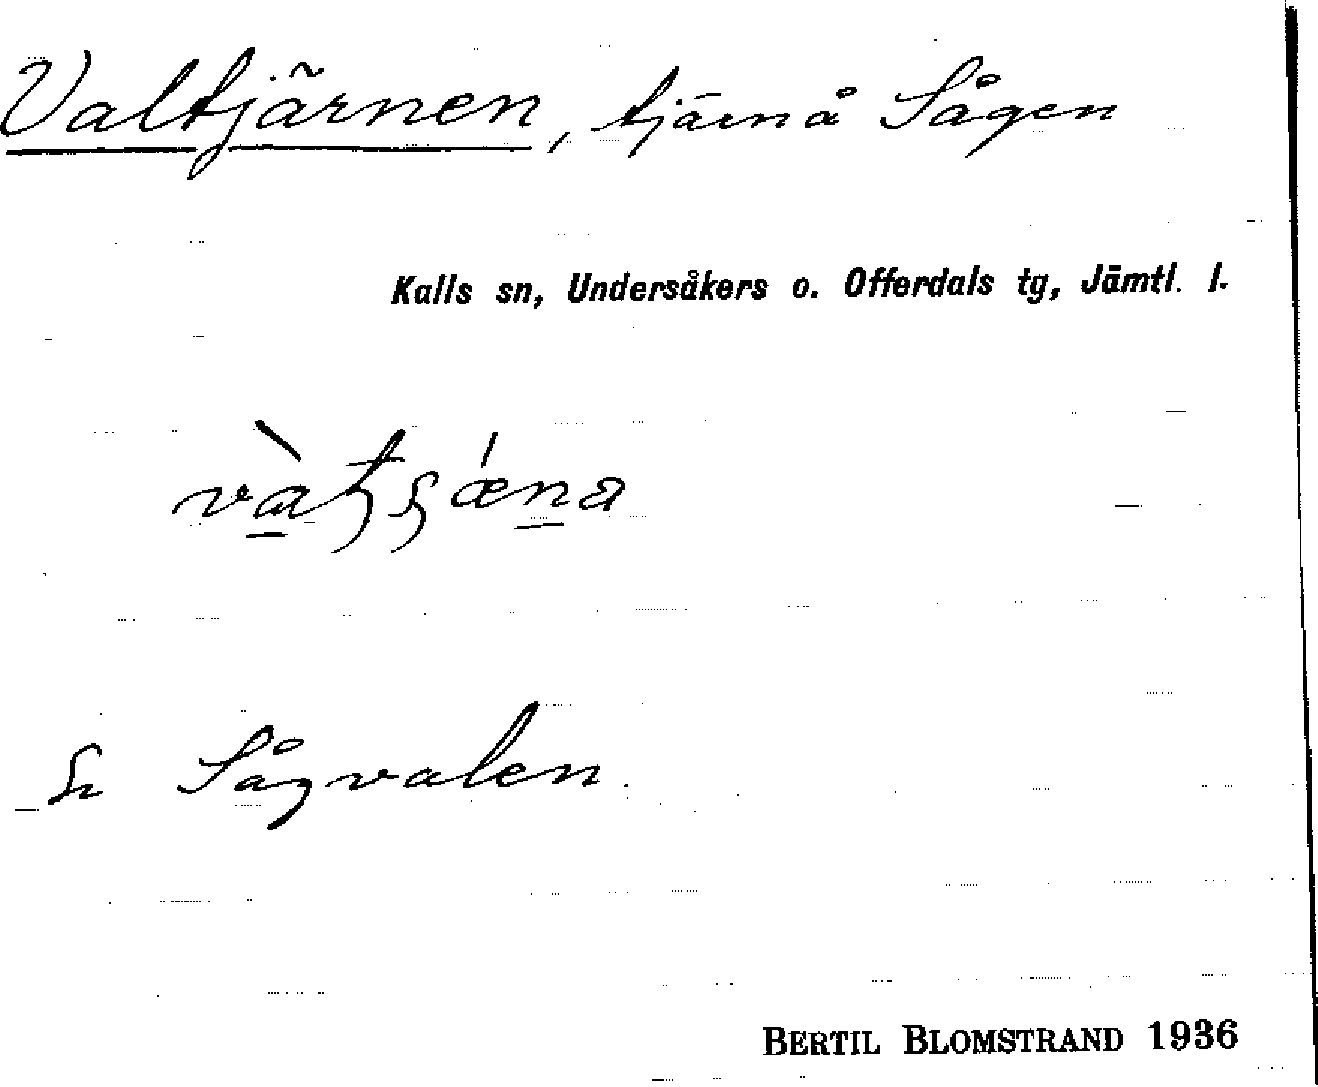 Valtjärnen, tjärn å Sågen
Kalls sn, Undersåkers o. Offerdals tg, Jämtl. l.
Se Sågvalen.
BERTIL BLOMSTRAND 1936